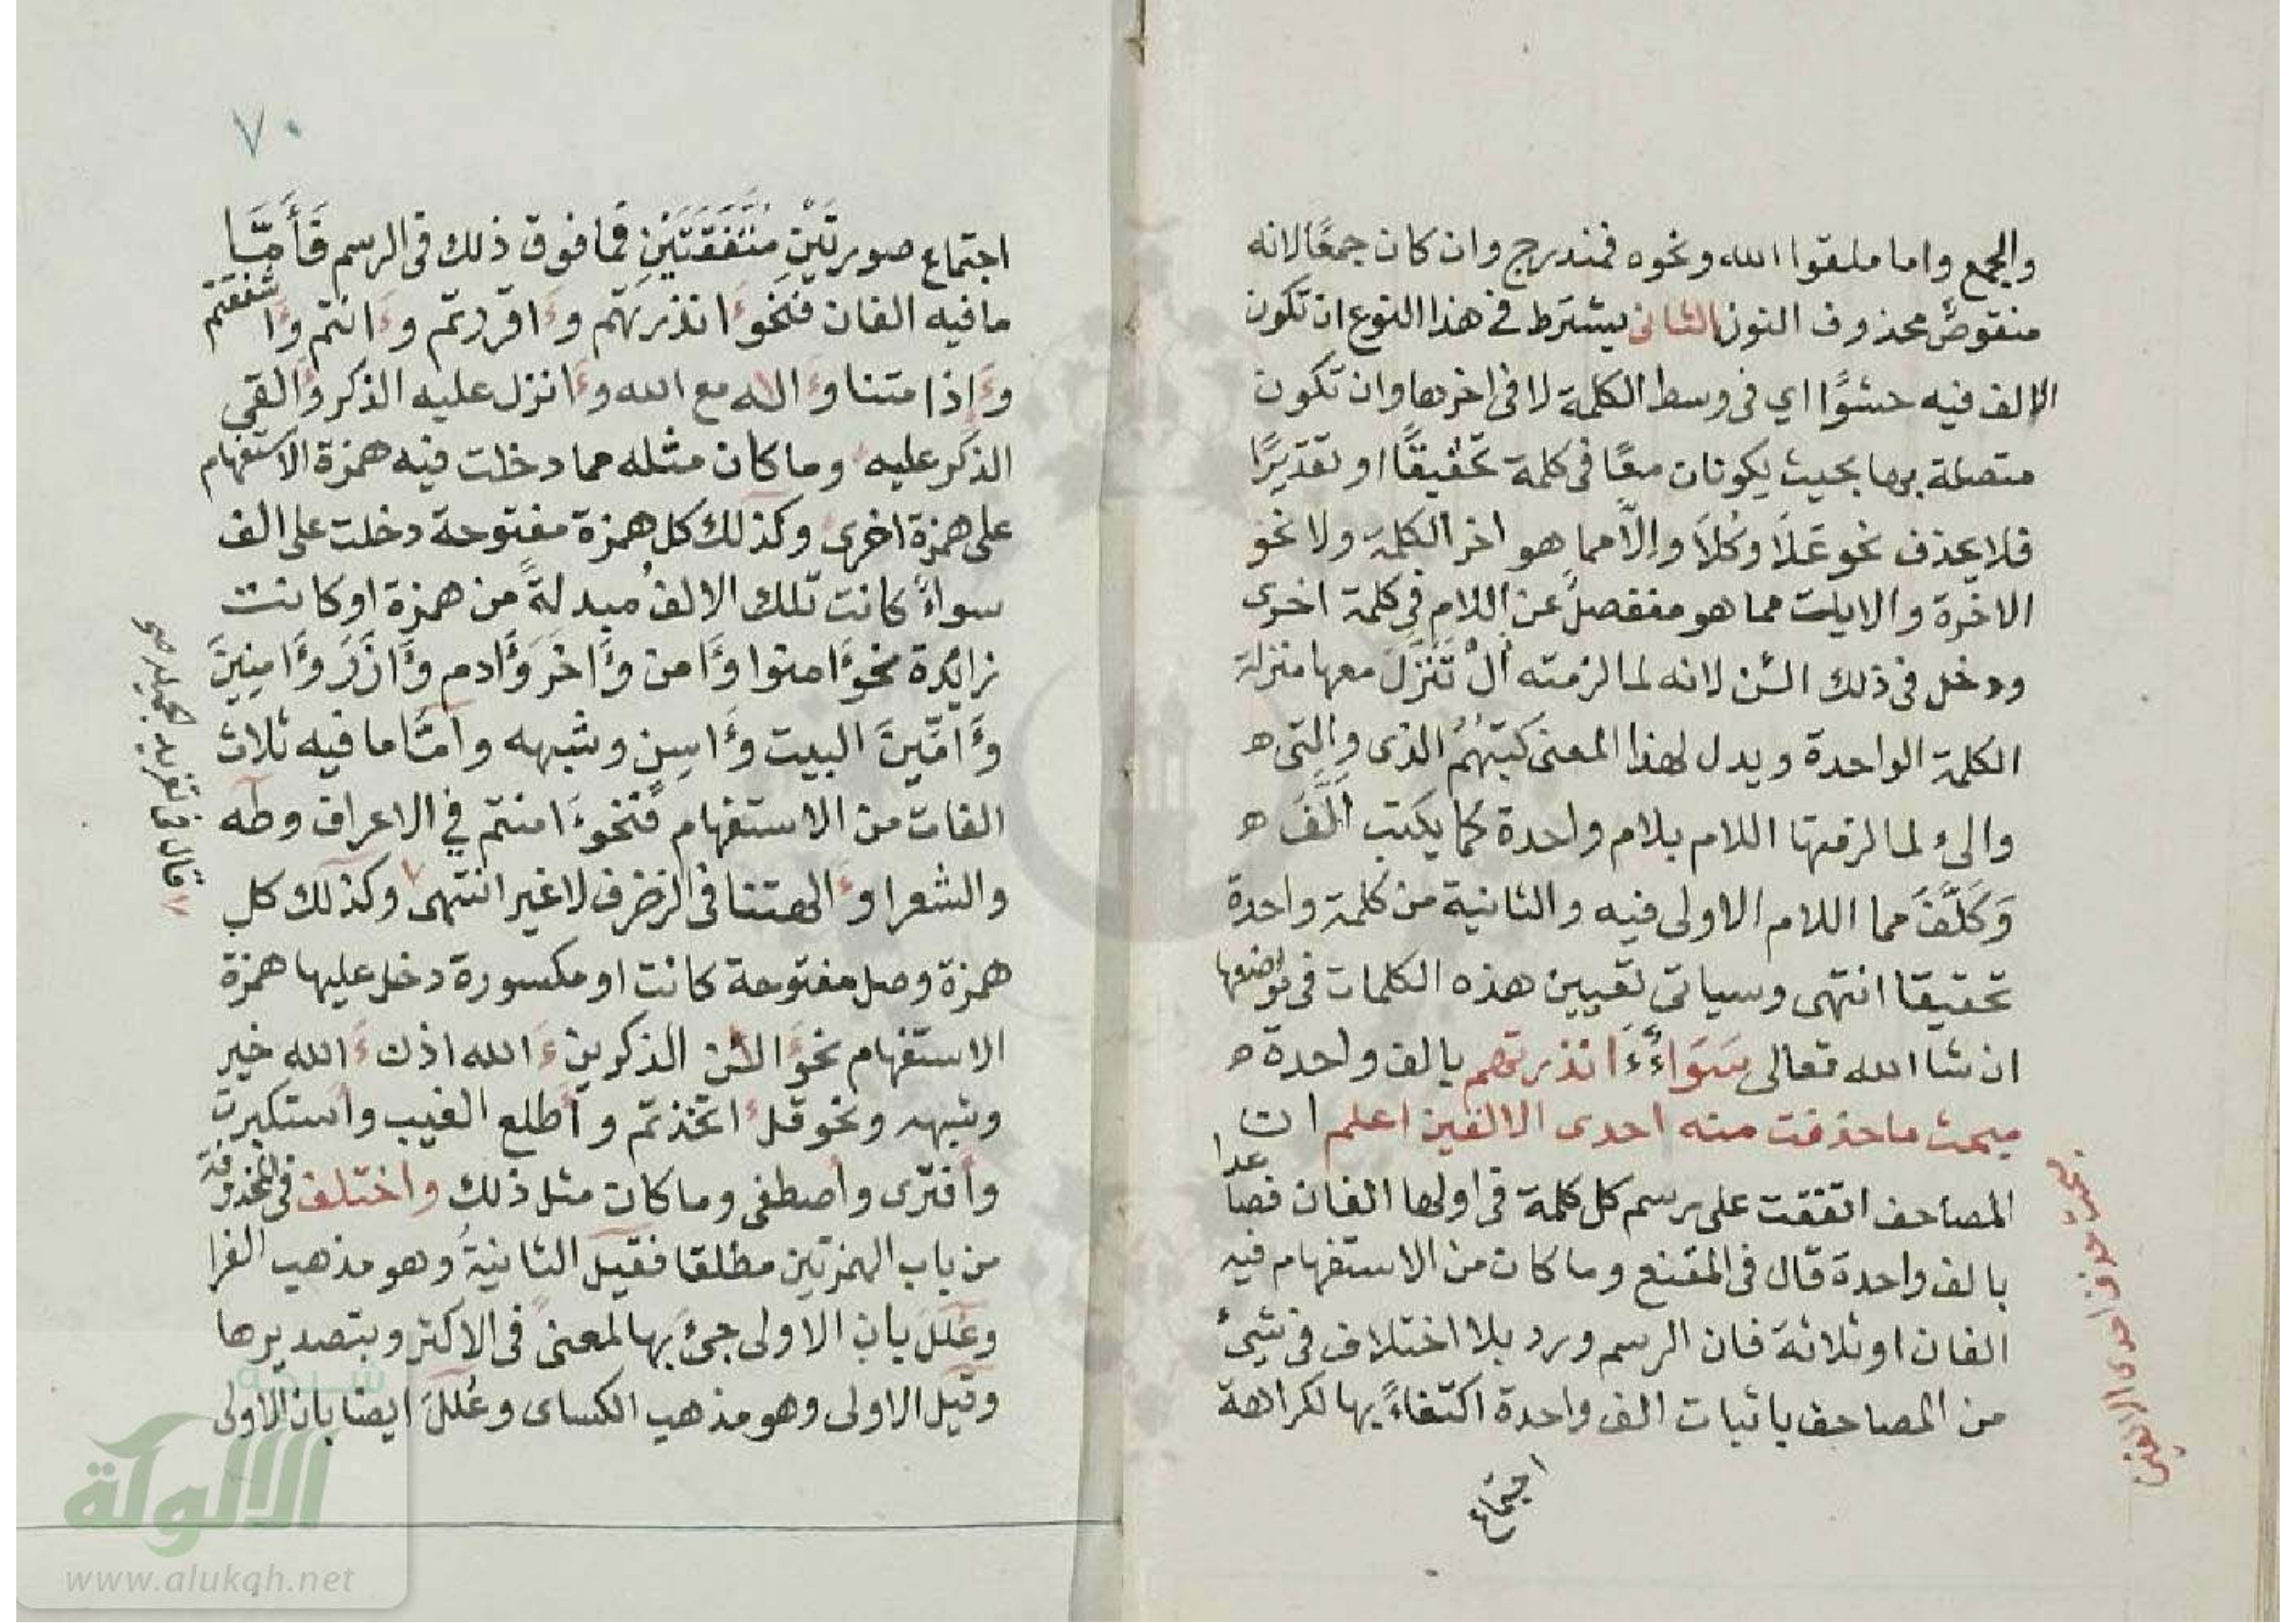 والجمع واما ملقوا الله ونحوه فمندرج وان كان جمعًا لانه
منقوصٌ محذوف النون الثانى يشترط فى هذا النوع ان تكون
الالف فيه حشوًا اي فى وسط الكلمة لا فى اخرها وان تكون
متصلة بها بحيث يكونان معًا فى كلمة تحقيقًا او تقديرًا
فلا يحذف نحو عَلَا وكَلَا وإلّا مما هو اخر الكلمة ولا نحو
الاخرة والايات مما هو منفصلٌ عن اللام فى كلمة اخرى
ودخل فى ذلك الئن لانه لما لزمته أل تنزل معها منزلة
الكلمة الواحدة ويدل لهذا المعنى كتبهم الذى والتى ه
والئ لما لزمتها اللام بلام واحدة كما يكتب ألَّفَ ه
وَكَلَّفَ مما اللام الاولى فيه والثانية من كلمة واحدة
تحقيقا انتهى وسياتى تعيين هذه الكلمات فى مواضعها
ان شا الله تعالى سَوَاءٌ ءَا نذرتهم بالف واحدة ه
مبحث ما حذفت منه احدى الالفين اعلم ان
المصاحف اتفقت على رسم كل كلمة فى اولها الفان فصا
عدا
بالف واحدة قال فى المقنع وما كان من الاستفهام فيه
الفان او ثلاثة فان الرسم ورد بلا اختلاف فى شئ
من المصاحف باثبات الف واحدة اكتفاءً بها لكراهة
اجتماع
مبحث حذف احدى الالفين
٧٠
اجتماع صورتَيْنِ متفقتَيْنِ فما فوق ذلك فى الرسم فَأَمَّا
ما فيه الفان فنحو ءَا نذرتهم و ءَا قررتم و ءَا نتم و ءَا شفقتم
و ءَ اذا متنا و ءَ اله مع الله و ءَ انزل عليه الذكر و ءَ القى
الذكر عليه وما كان مثله مما دخلت فيه همزة الاستفهام
على همزة اخرى وكذلك كل همزة مفتوحة دخلت على الف
سواءً كانت تلك الالفُ مبدلةً من همزة او كانت
زايدة نحو ءَامنوا و ءَامن و ءَاخر و ءَادم و ءَازر و ءَامنين
و ءَامّين البيت و ءَاسن وشبهه وامّا ما فيه ثلاث
الفات من الاستفهام فنحو ءَامنتم في الاعراف وطه
والشعرا و ءَالهتنا فى الزخرف لا غير انتهى وكذلك كل
همزة وصل مفتوحة كانت او مكسورة دخل عليها همزة
الاستفهام نحو ءَالئن ءالذكرين ءَالله اذن ءَالله خير
وشبهه ونحو قل اتخذتم و أطلع الغيب و أستكبرت
و أفترى و أصطفى وما كان مثل ذلك واختلف فى المحذوفة
من باب الهمزتين مطلقا فقيل الثانيةُ وهو مذهب الفرا
وعُلِّلَ بان الاولى جئَ بها لمعنىً فى الاكثر وبتصديرها
وقيل الاولى وهو مذهب الكساى وعُلِّلَ ايضا بان الاولى
الالوكة
www.alukah.net